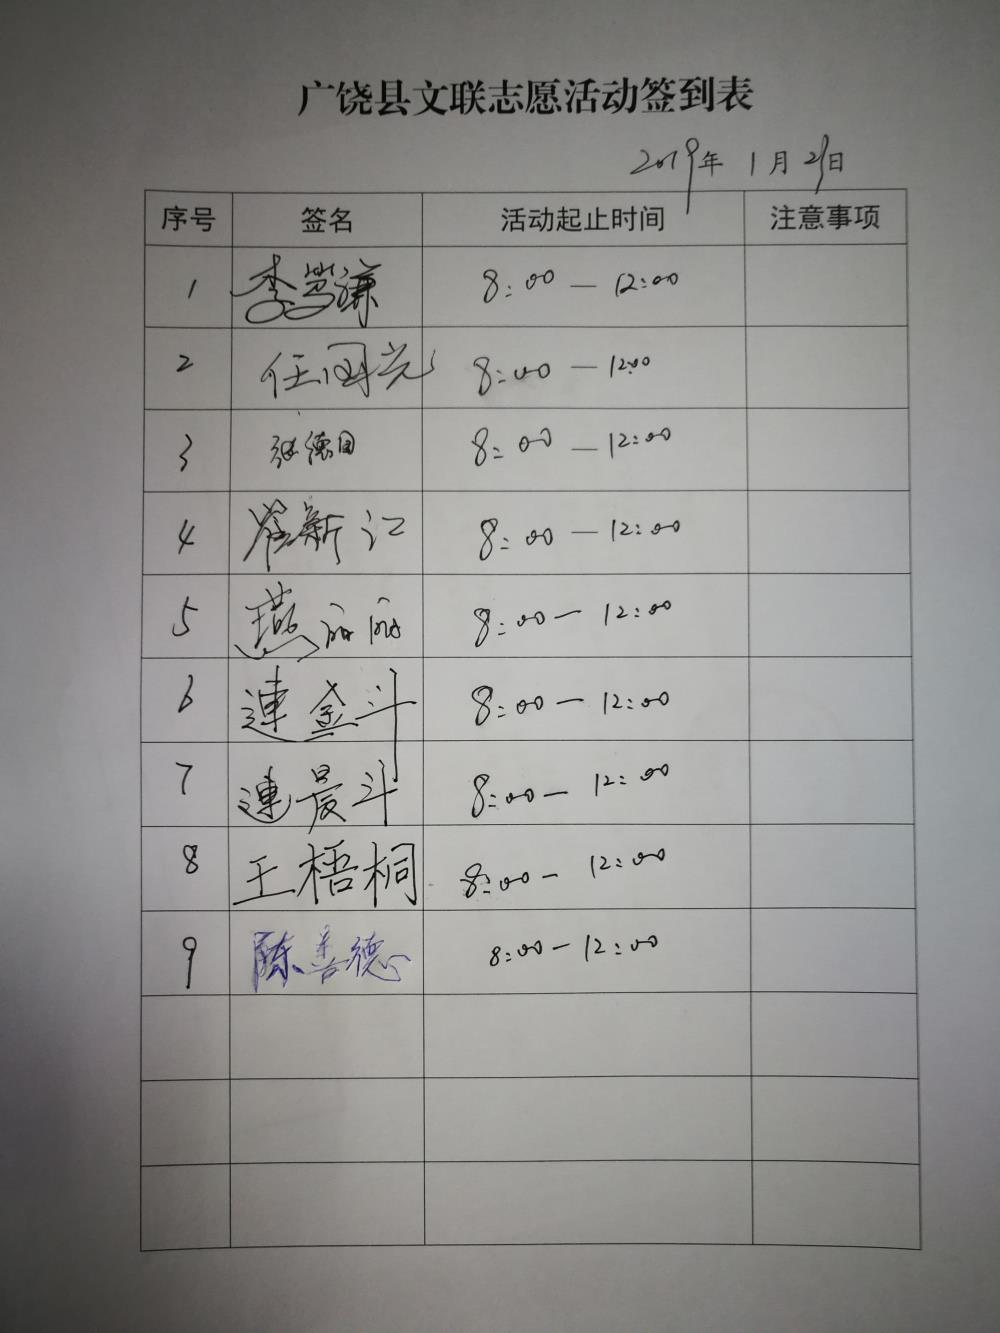 广饶县文联志愿活动签到表
2019年 1月29日
序号 签名 活动起止时间 注意事项
1 李笃谦 8:00 — 12:00
2 任国光 8:00 — 12:00
3 张德国 8:00 — 12:00
4 崔新江 8:00 — 12:00
5 燕丽丽 8:00 — 12:00
6 連金斗 8:00 — 12:00
7 連晨斗 8:00 — 12:00
8 王梧桐 8:00 — 12:00
9 陈善德 8:00 — 12:00